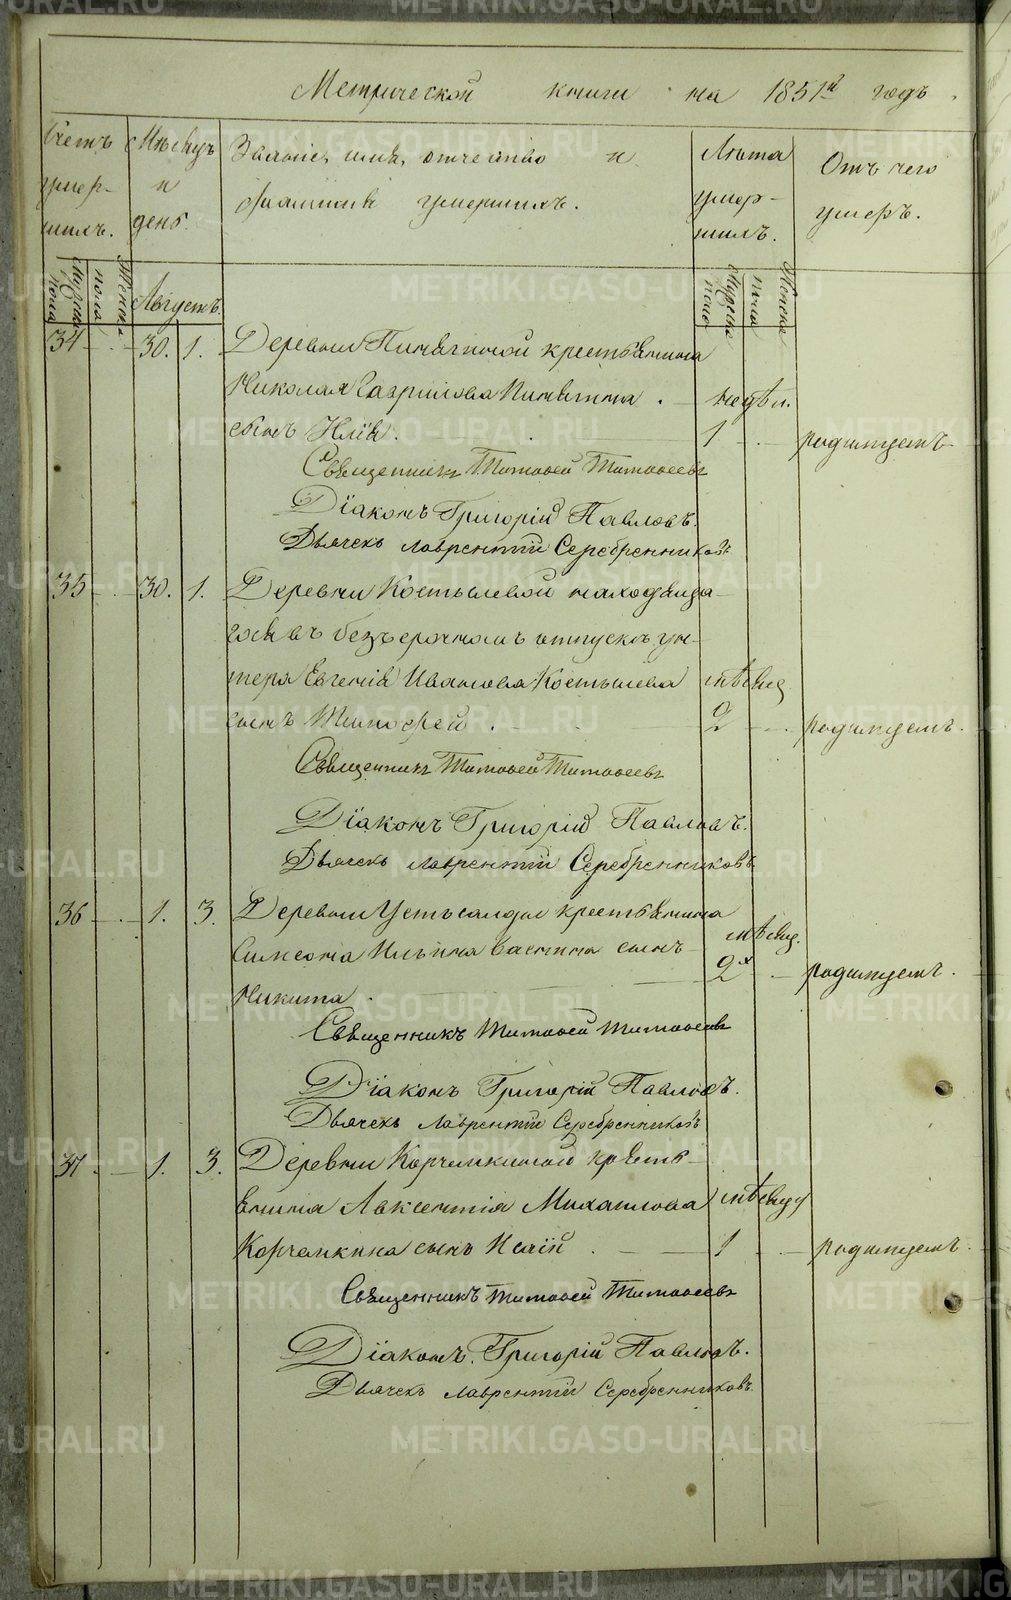 Метрической книги на 1851й годъ.
Счетъ умер- шихъ.
Мѣсяцъ и день.
Званіе, имя, отчество и
фамилія умершихъ.
Лѣта умер- шихъ.
Отъ чего умеръ.
Мужска пола
Женска пола
Августъ.
Мужска пола
Женска пола
34 30. 1. Деревни Пинягиной крестьянина
Николая Гаврилова Пинягина недѣл.
сынъ Илія. 1 родимцемъ
Священникъ Тимофей Тимофеевъ
Діаконъ Григорій Павловъ.
Дьячекъ Лаврентій Серебренниковъ
35 30. 1. Деревни Костылевой находяща-
гося въ безъсрочномъ отпускѣ ун-
тера Евгенія Иванова Костылева мѣсяц.
сынъ Тимофей. 2 родимцемъ.
Священникъ Тимофей Тимофеевъ
Діаконъ Григорій Павловъ.
Дьячекъ Лаврентій Серебренниковъ
36 1. 3. Деревни Устьсалды крестьянина
Симеона Ильина сынъ мѣсяц.
Никита. 2х родимцемъ.
Священникъ Тимофей Тимофеевъ
Діаконъ Григорій Павловъ.
Дьячекъ Лаврентій Серебренниковъ
37 1. 3. Деревни Корчемкиной кресть-
янина Авксентія Михайлова мѣсяцу
Корчемкина сынъ 1 родимцемъ.
Священникъ Тимофей Тимофеевъ
Діаконъ Григорій Павловъ.
Дьячекъ Лаврентій Серебренниковъ.
METRIKI.GASO-URAL.RU